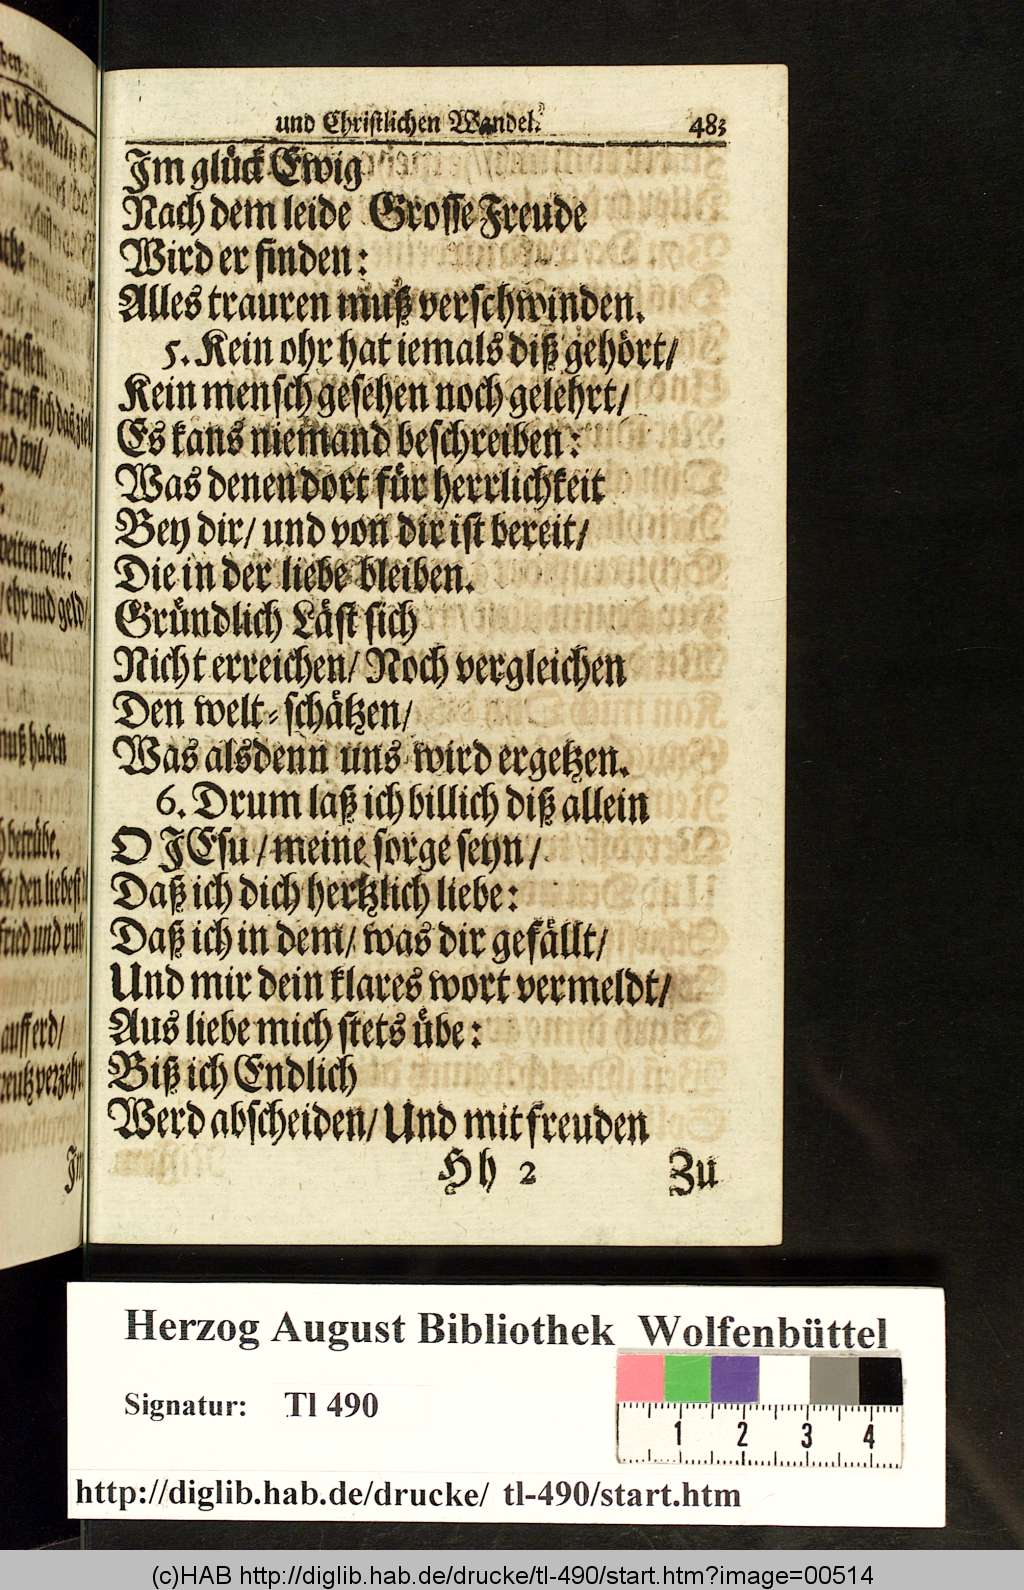 und Christlichen Wandel. 483
Im glück Ewig
Nach dem leide Grosse Freude
Wird er finden:
Alles trauren muß verschwinden.
5. Kein ohr hat iemals diß gehört/
Kein mensch gesehen noch gelehrt/
Es kans niemand beschreiben:
Was denen dort für herrlichkeit
Bey dir/ und von dir ist bereit/
Die in der liebe bleiben.
Gründlich Läst sich
Nicht erreichen/ Noch vergleichen
Den welt-schätzen/
Was alsdenn uns wird ergetzen.
6. Drum laß ich billich diß allein
O JEsu/ meine sorge seyn/
Daß ich dich hertzlich liebe:
Daß ich in dem/ was dir gefällt/
Und mir dein klares wort vermeldt/
Aus liebe mich stets übe:
Biß ich Endlich
Werd abscheiden/ Und mit freuden
Hh 2 Zu
giessen.
treff ich das ziel
nd wil/
weiten welt:
/ ehr und geld/
muß haben
betrübe.
/ den liebest
fried und ruh
auff erd/
creutz verzehr
Im
Herzog August Bibliothek Wolfenbüttel
Signatur: Tl 490
1 2 3 4
http://diglib.hab.de/drucke/ tl-490/start.htm
(c)HAB http://diglib.hab.de/drucke/tl-490/start.htm?image=00514